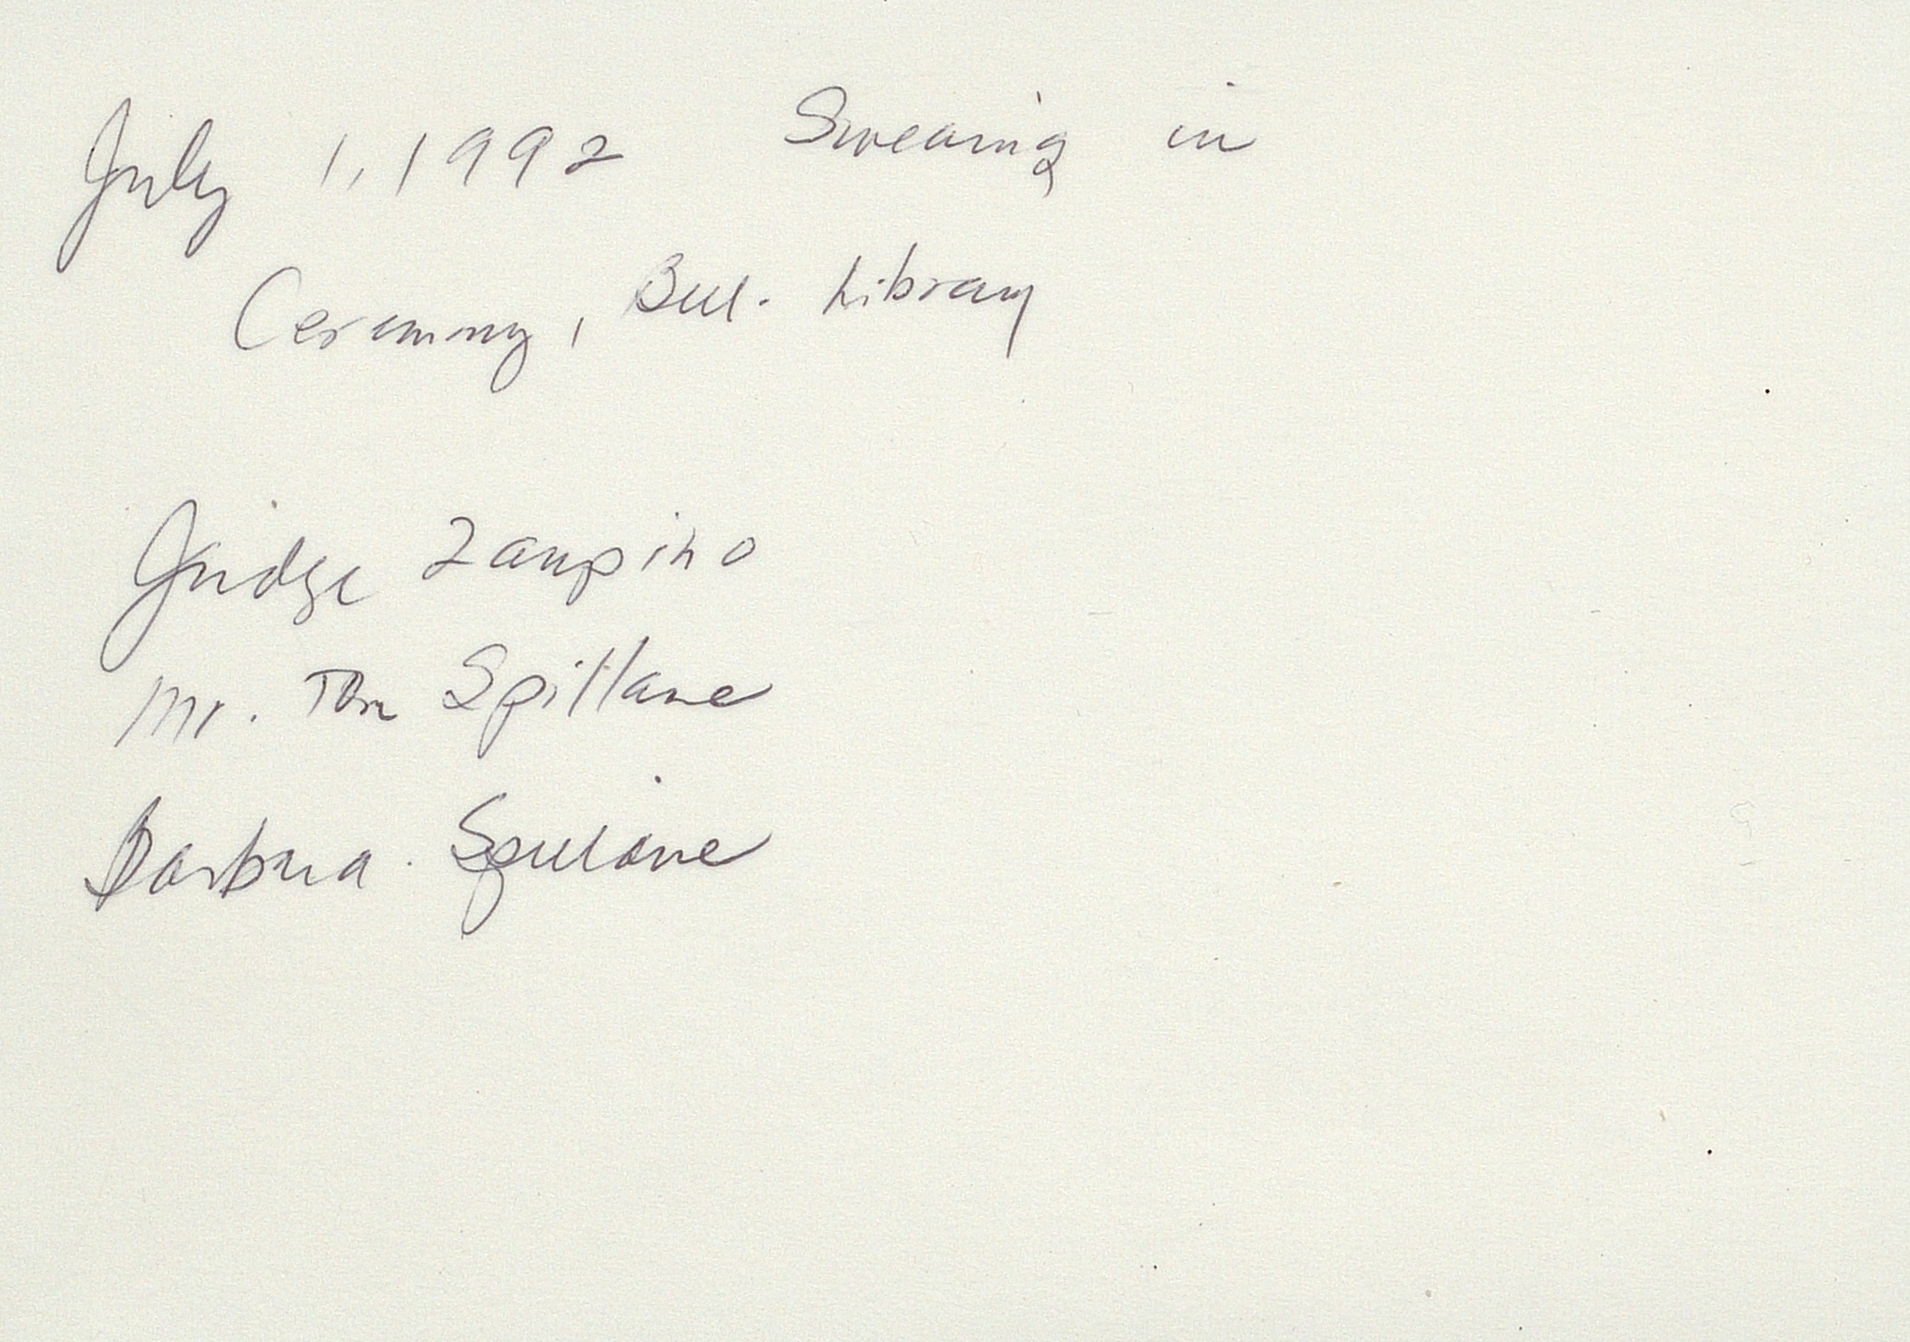 July 1, 1992 Swearing in
Ceremony, Bel. Library
Judge Zampino
Mr. Tom Spillane
Barbara Spillane